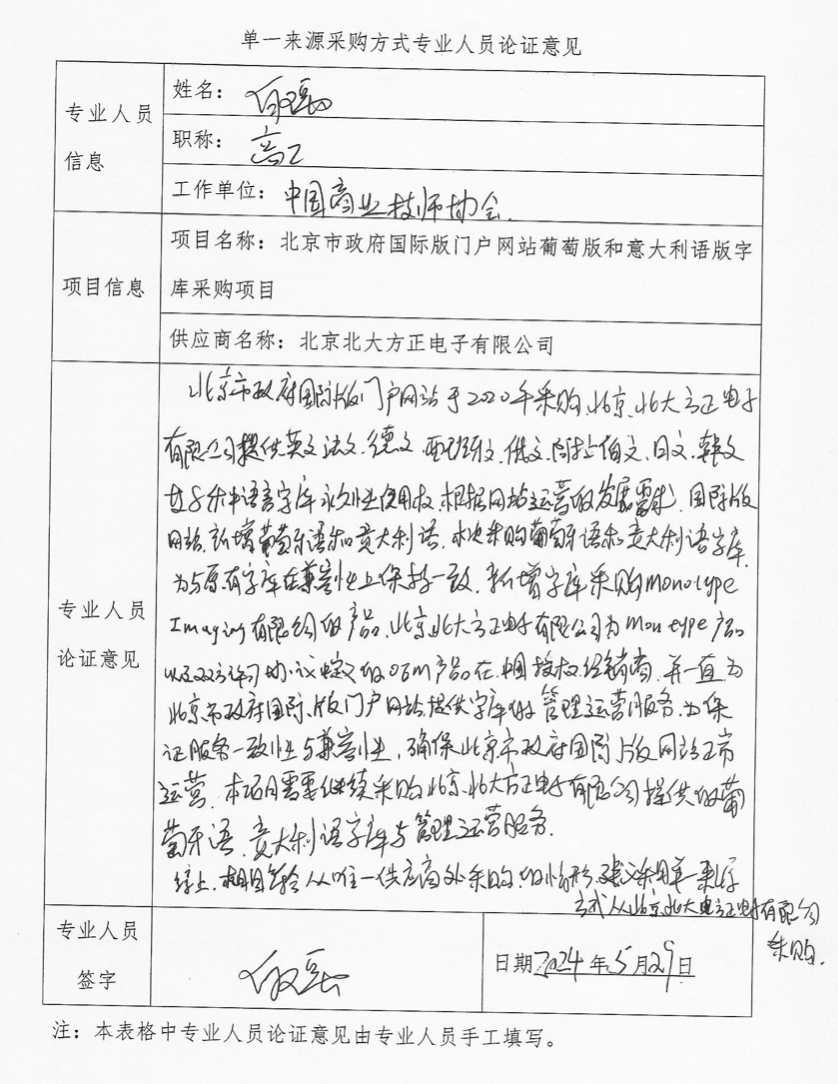 单一来源采购方式专业人员论证意见
专业人员
信息
姓名：
职称：高工
工作单位：中国商业技师协会
项目信息
项目名称：北京市政府国际版门户网站葡萄版和意大利语版字
库采购项目
供应商名称：北京北大方正电子有限公司
专业人员
论证意见
北京市政府国际版门户网站于2020年采购北京北大方正电子
有限公司提供英文、法文、德文、西班牙文、俄文、阿拉伯文、日文、韩文
语言字库永久性使用权，根据网站运营的发展需求，国际版
网站新增葡萄牙语和意大利语，本次采购葡萄牙语和意大利语字库，
为与原有字库在兼容性上保持一致，新增字库采购monotype
Imaging有限公司的产品，北京北大方正电子有限公司为monotype产品
以及双方许可协议定义的OEM产品在中国授权经销商，并一直为
北京市政府国际版门户网站提供字库的管理运营服务。为保
证服务一致性与兼容性，确保北京市政府国际版网站正常
运营，本项目需要继续采购北京北大方正电子有限公司提供的葡
萄牙语、意大利语字库与管理运营服务。
综上，项目符合从唯一供应商处采购的情形，建议采用单一来源
方式从北京北大方正电子有限公司
采购。
专业人员
签字
日期2024年5月29日
注：本表格中专业人员论证意见由专业人员手工填写。